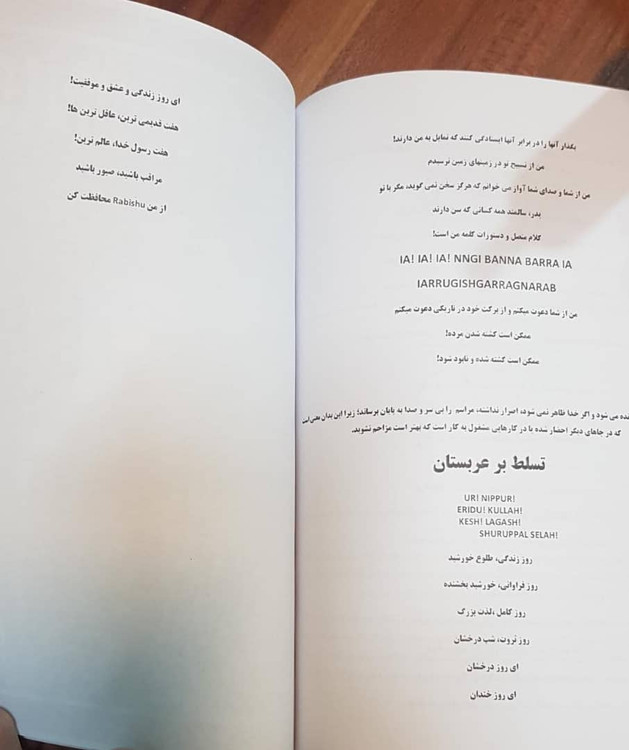 بگذار آنها را در برابر آنها ایستادگی کنند که تمایل به من دارند!
من از تسبیح تو در زمینهای زمین نرسیدم
من از شما و صدای شما آواز می خوانم که هرگز سخن نمی گوید، مگر با تو
پدر، سالمند همه کسانی که سن دارند
کلام متصل و دستورات کلمه من است!
IA! IA! IA! NNGI BANNA BARRA IA
IARRUGISHGARRAGNARAB
من از شما دعوت میکنم و از برکت خود در تاریکی دعوت میکنم
ممکن است کشته شدن مرده!
ممکن است کشته شده و نابود شود!
می شود و اگر خدا ظاهر نمی شود، اصرار نداشته، مراسم را بی سر و صدا به پایان برساند؛ زیرا این بدان معنی است
که در جاهای دیگر احضار شده یا در کارهایی مشغول به کار است که بهتر است مزاحم نشوید.
تسلط بر عربستان
UR! NIPPUR!
ERIDU! KULLAH!
KESH! LAGASH!
SHURUPPAL SELAH!
روز زندگی، طلوع خورشید
روز فراوانی، خورشید بخشنده
روز کامل ،لذت بزرگ
روز ثروت، شب درخشان
ای روز درخشان
ای روز خندان
ای روز زندگی و عشق و موفقیت!
هفت قدیمی ترین، عاقل ترین ها!
هفت رسول خدا، عالم ترین!
مراقب باشید، صبور باشید
از من Rabishu محافظت کن